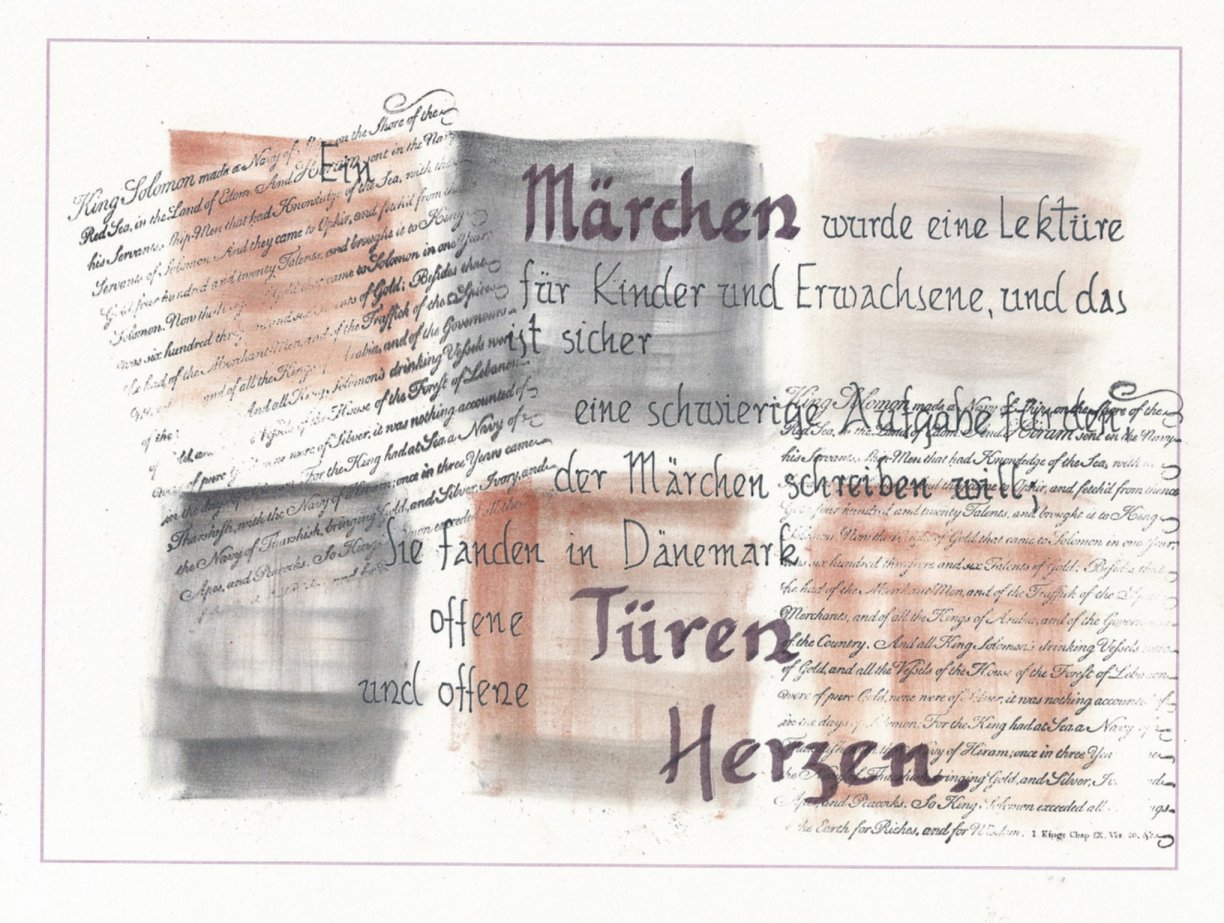 Ein
Märchen wurde eine Lektüre
für Kinder und Erwachsene, und das
ist sicher
eine schwierige Aufgabe für den,
der Märchen schreiben will;
Sie fanden in Dänemark
offene Türen
und offene
Herzen.
King Solomon made a Navy of on the Shore of the
Red Sea, in the Land of Edom. And sent in the Navy
his Servants, Ship-Men that had Knowledge of the Sea, with the
Servants of Solomon. And they came to Ophir, and fetch'd from
Gold four hundred and twenty Talents, and brought it to King
Solomon. Now the Gold that came to Solomon in one Year,
was six hundred of Gold; Besides that
he had of the Merchant-Men, and of the Traffick of the Spice
and of all the Kings Arabia, and of the Governours
of the And all King Solomon's drinking Vessels were
of the House of the Forest of Lebanon
of pure were of Silver, it was nothing accounted of
in the days For the King had at Sea a Navy of
Tharshish, with the Navy of Hiram; once in three Years came
the Navy of Tharshish, bringing Gold, and Silver, Ivory, and
Apes, and Peacocks. So King exceeded all the
King Solomon made a Navy of Ships on the Shore of the
Red Sea, in the Land of Edom. And Hiram sent in the Navy
his Servants, Ship-Men that had Knowledge of the Sea, with
to Ophir, and fetch'd from thence
Gold four hundred and twenty Talents, and brought it to King
Solomon. Now the of Gold that came to Solomon in one Year,
was six hundred threescore and six Talents of Gold; Besides that
he had of the Merchant-Men, and of the Traffick of the Spice
Merchants, and of all the Kings of Arabia, and of the Governours
of the Country. And all King Solomon's drinking Vessels were
of Gold, and all the Vessels of the House of the Forest of Lebanon
were of pure Gold, none were of Silver, it was nothing accounted of
in the days of Solomon: For the King had at Sea a Navy of
Navy of Hiram; once in three
the Navy of Tharshish bringing Gold, and Silver,
Apes, and Peacocks. So King Solomon exceeded all
the Earth for Riches, and for Wisdom. 1 Kings Chap IX. Ver. 26,